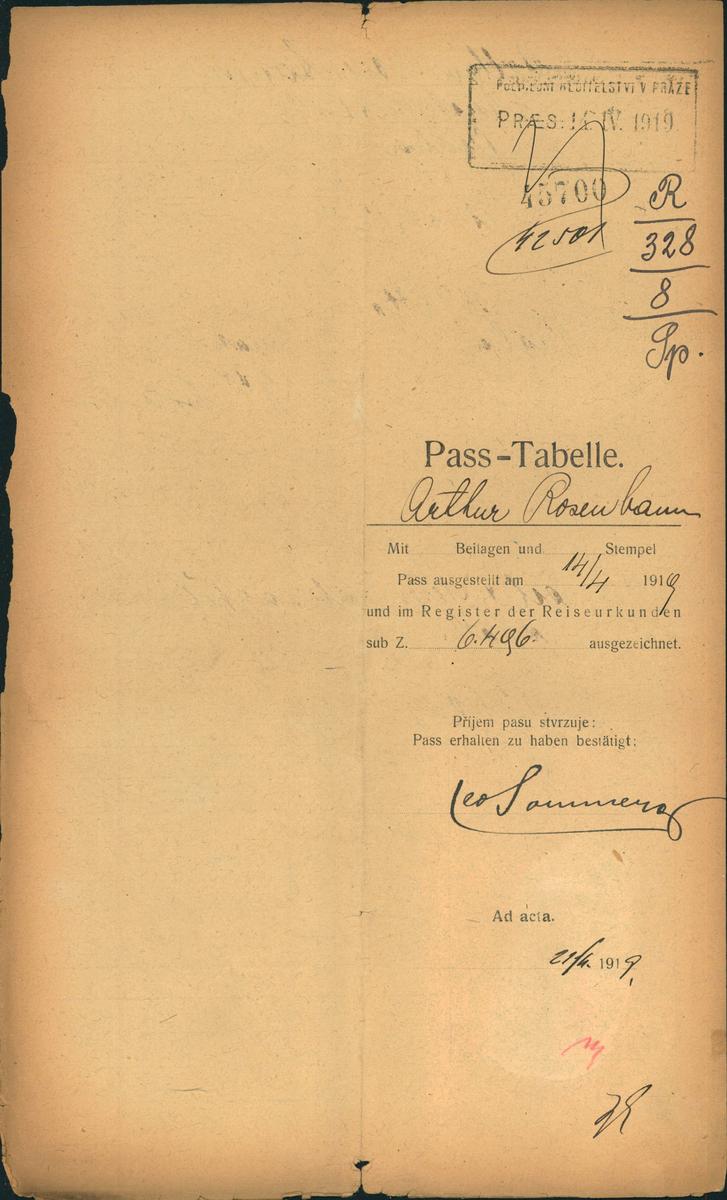 POLICEJNÍ ŘEDITELSTVÍ V PRAZE
PRÆS. 14. IV. 1919
45700
42501
R
328
8
Sp.
Pass-Tabelle.
Arthur Rosenbaum
Mit Beilagen und Stempel
Pass ausgestellt am 14/4 1919
und im Register der Reiseurkunden
sub Z. 6.496. ausgezeichnet.
Příjem pasu stvrzuje:
Pass erhalten zu haben bestätigt:
Leo Sommer
Ad acta.
21/4. 1919.